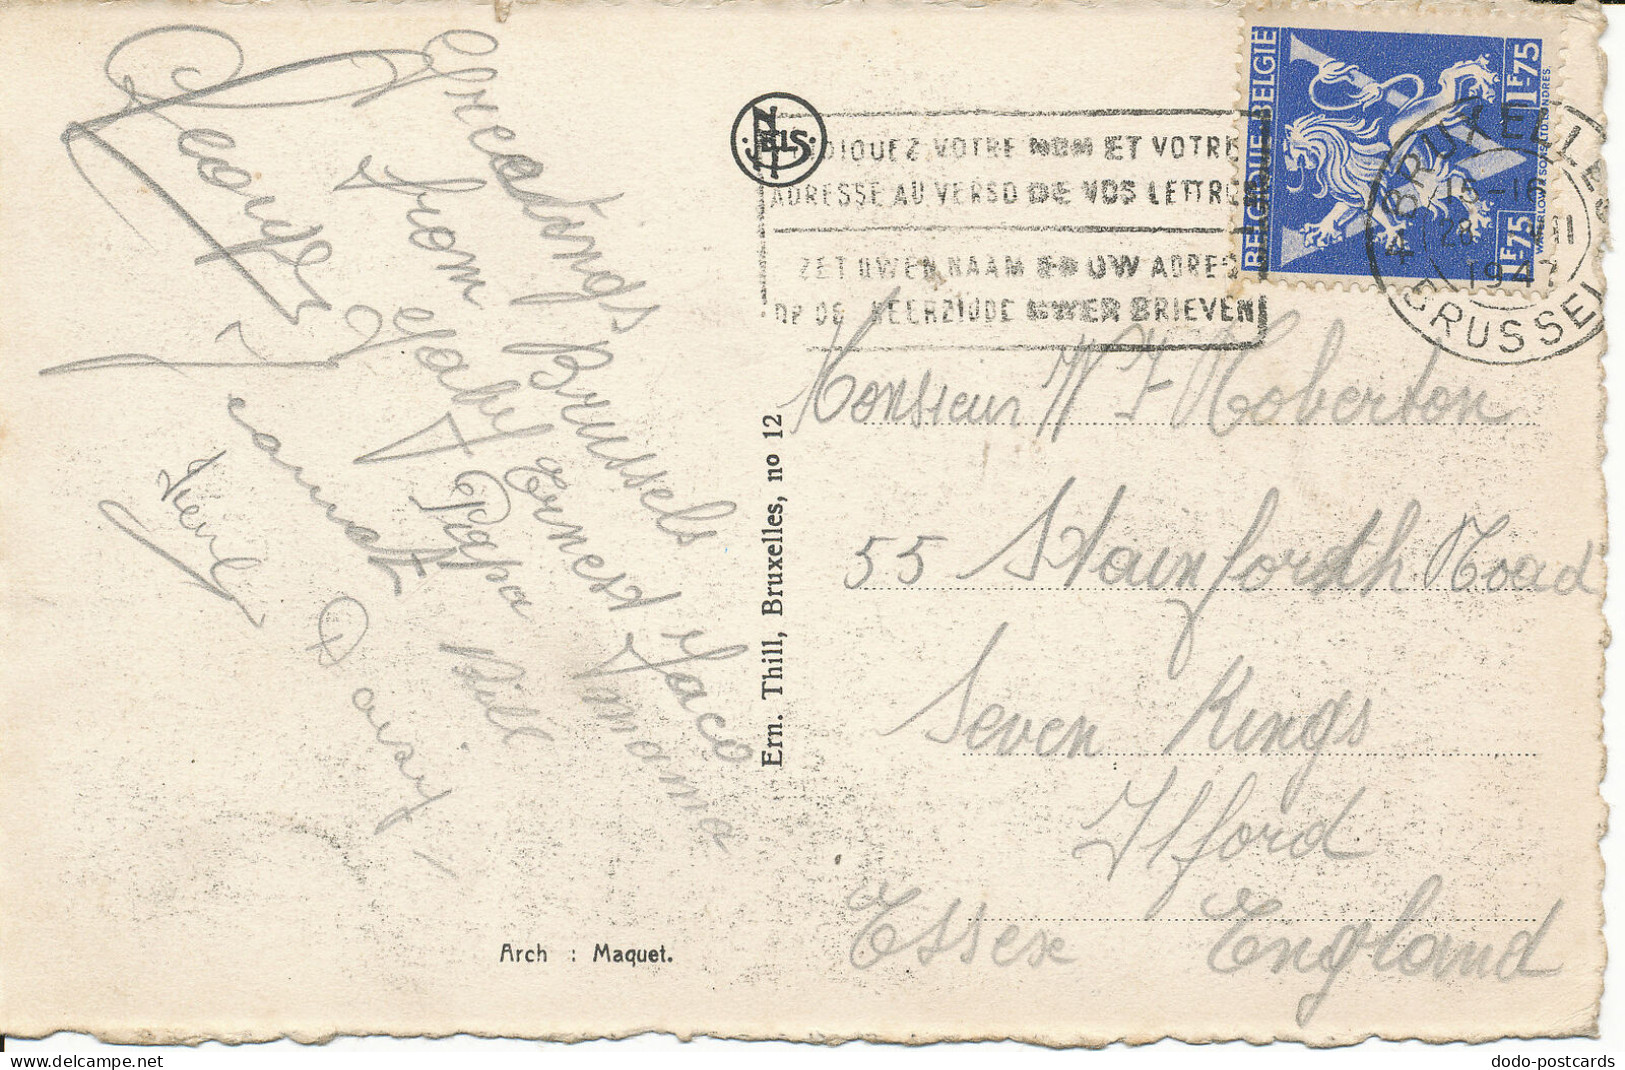 Greetings Brussels
from Gaby Ernest Jaco
Pippa mama
Georges
Jeannot Bill
Daisy
Arch : Maquet.
Ern. Thill, Bruxelles, no 12
NELS
INDIQUEZ VOTRE NOM ET VOTRE
ADRESSE AU VERSO DE VOS LETTRES
ZET UWEN NAAM EN UW ADRES
OP DE KEERZIJDE UWER BRIEVEN
BELGIQUE-BELGIE
1F75
1F75
WATERLOW & SONS LTD LONDRES
BRUXELLES
15-16
1947
BRUSSEL
Monsieur W F Roberton
55 Stainforth Road
Seven Kings
Ilford
Essex England
dodo-postcards